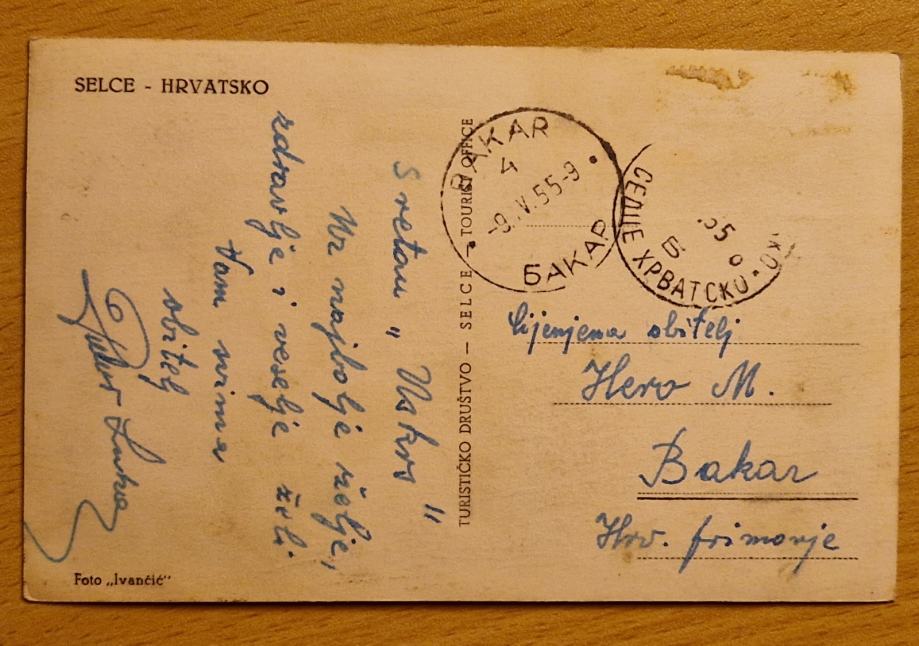 SELCE - HRVATSKO
Sretan „Uskrs"
Uz najbolje želje,
zdravlje i veselje želi
Vam svima
obitelj
TURISTIČKO DRUŠTVO — SELCE — TOURIST OFFICE
BAKAR
4
-9.IV.55-9
БАКАР
55
СЕЛЦЕ ХРВАТСКО
Cijenjena obitelj
Hero M.
Bakar
Hrv. primorje
Foto „Ivančić"